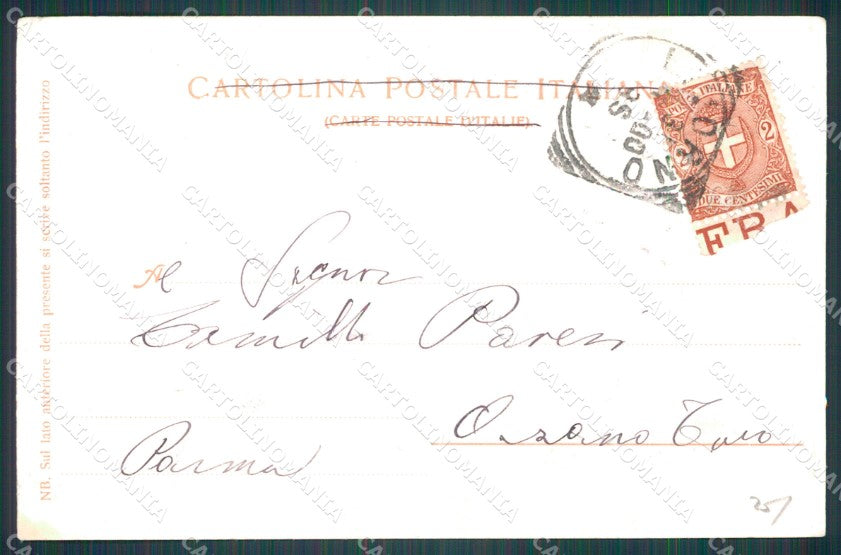 CARTOLINA POSTALE ITALIANA
(CARTE POSTALE D'ITALIE)
POSTE ITALIANE
2 2
DUE CENTESIMI
FRA
Al Signor
Camillo Paresi
Parma
NB. Sul lato anteriore della presente si scrive soltanto l'indirizzo
25/
CARTOLINOMANIA